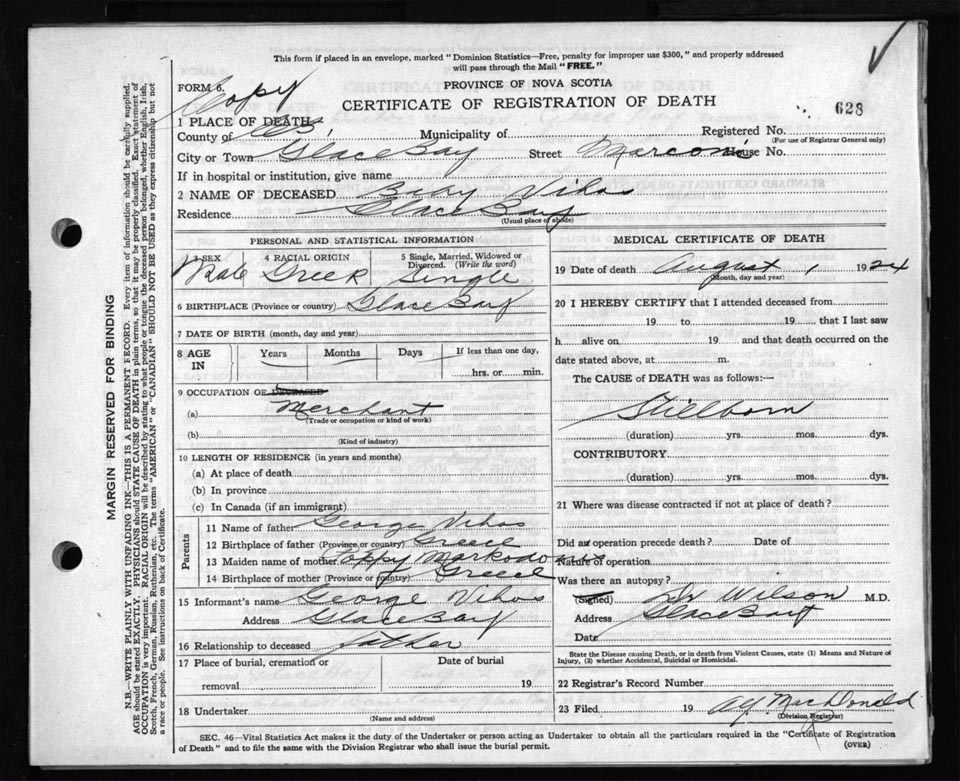 This form if placed in an envelope, marked "Dominion Statistics—Free, penalty for improper use $300," and properly addressed
will pass through the Mail "FREE."
FORM 6.
Copy
PROVINCE OF NOVA SCOTIA
CERTIFICATE OF REGISTRATION OF DEATH
628
1 PLACE OF DEATH
County of C.B. Municipality of Registered No.
(For use of Registrar General only)
City or Town Glace Bay Street Marconi House No.
If in hospital or institution, give name
2 NAME OF DECEASED Baby Vihos
Residence Glace Bay
(Usual place of abode)
PERSONAL AND STATISTICAL INFORMATION
3 SEX 4 RACIAL ORIGIN 5 Single, Married, Widowed or Divorced. (Write the word)
Male Greek Single
6 BIRTHPLACE (Province or country) Glace Bay
7 DATE OF BIRTH (month, day and year)
8 AGE IN Years Months Days If less than one day,
hrs. or min.
9 OCCUPATION OF DECEASED
(a) Merchant
(Trade or occupation or kind of work)
(b)
(Kind of industry)
10 LENGTH OF RESIDENCE (in years and months)
(a) At place of death
(b) In province
(c) In Canada (if an immigrant)
Parents
11 Name of father George Vihos
12 Birthplace of father (Province or country) Greece
13 Maiden name of mother Poppy Markodonis
14 Birthplace of mother (Province or country) Greece
15 Informant's name George Vihos
Address Glace Bay
16 Relationship to deceased father
17 Place of burial, cremation or removal Date of burial
19
18 Undertaker
(Name and address)
MEDICAL CERTIFICATE OF DEATH
19 Date of death August 1 1924
(Month, day and year)
20 I HEREBY CERTIFY that I attended deceased from
19 to 19 that I last saw
h alive on 19 and that death occurred on the
date stated above, at m.
The CAUSE of DEATH was as follows:—
Stillborn
(duration) yrs. mos. dys.
CONTRIBUTORY
(duration) yrs. mos. dys.
21 Where was disease contracted if not at place of death?
Did an operation precede death? Date of
Nature of operation
Was there an autopsy?
(Signed) Dr Wilson M.D.
Address Glace Bay
Date
State the Disease causing Death, or in death from Violent Causes, state (1) Means and Nature of
Injury, (2) whether Accidental, Suicidal or Homicidal.
22 Registrar's Record Number
23 Filed 19 A.Y. MacDonald
(Division Registrar)
SEC. 46—Vital Statistics Act makes it the duty of the Undertaker or person acting as Undertaker to obtain all the particulars required in the "Certificate of Registration
of Death" and to file the same with the Division Registrar who shall issue the burial permit.
(OVER)
MARGIN RESERVED FOR BINDING
N.B.—WRITE PLAINLY WITH UNFADING INK—THIS IS A PERMANENT RECORD. Every item of information should be carefully supplied.
AGE should be stated EXACTLY. PHYSICIANS should STATE CAUSE OF DEATH in plain terms, so that it may be properly classified. Exact statement of
OCCUPATION is very important. RACIAL ORIGIN will be described by stating to what people or tongue the deceased person belonged, whether English, Irish,
Scotch, French, German, Russian, Ruthenian, etc. The terms "AMERICAN" or "CANADIAN" SHOULD NOT BE USED as they express citizenship but not
a race or people. See instructions on back of Certificate.